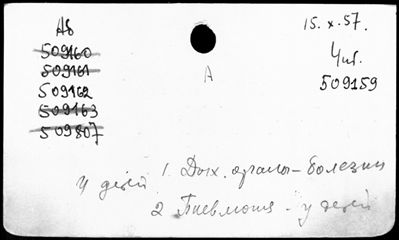 Аб
509160
509161
509162
509163
509807
15. X. 57.
Чит.
509159
А
1. Дых. органы - болезни
у детей
2. Пневмония - у детей